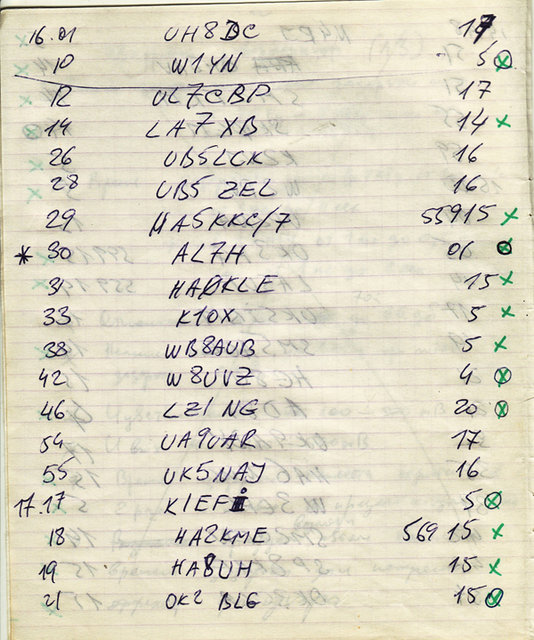 16.01 UH8DC 17
10 W1YN 5
12 UL7CBP 17
14 LA7XB 14 x
26 UB5LCK 16
28 UB5ZEL 16
29 HA5KKC/7 55915 x
* 30 AL7H 06
31 HA0KLE 15 x
33 K1OX 5 x
38 WB8AUB 5 x
42 W8UVZ 4 x
46 LZ1NG 20 x
54 UA9UAR 17
55 UK5NAJ 16
17.17 K1EFI 5 x
18 HA2KME 569 15 x
19 HA8UH 15 x
21 OK2 BLG 15 x